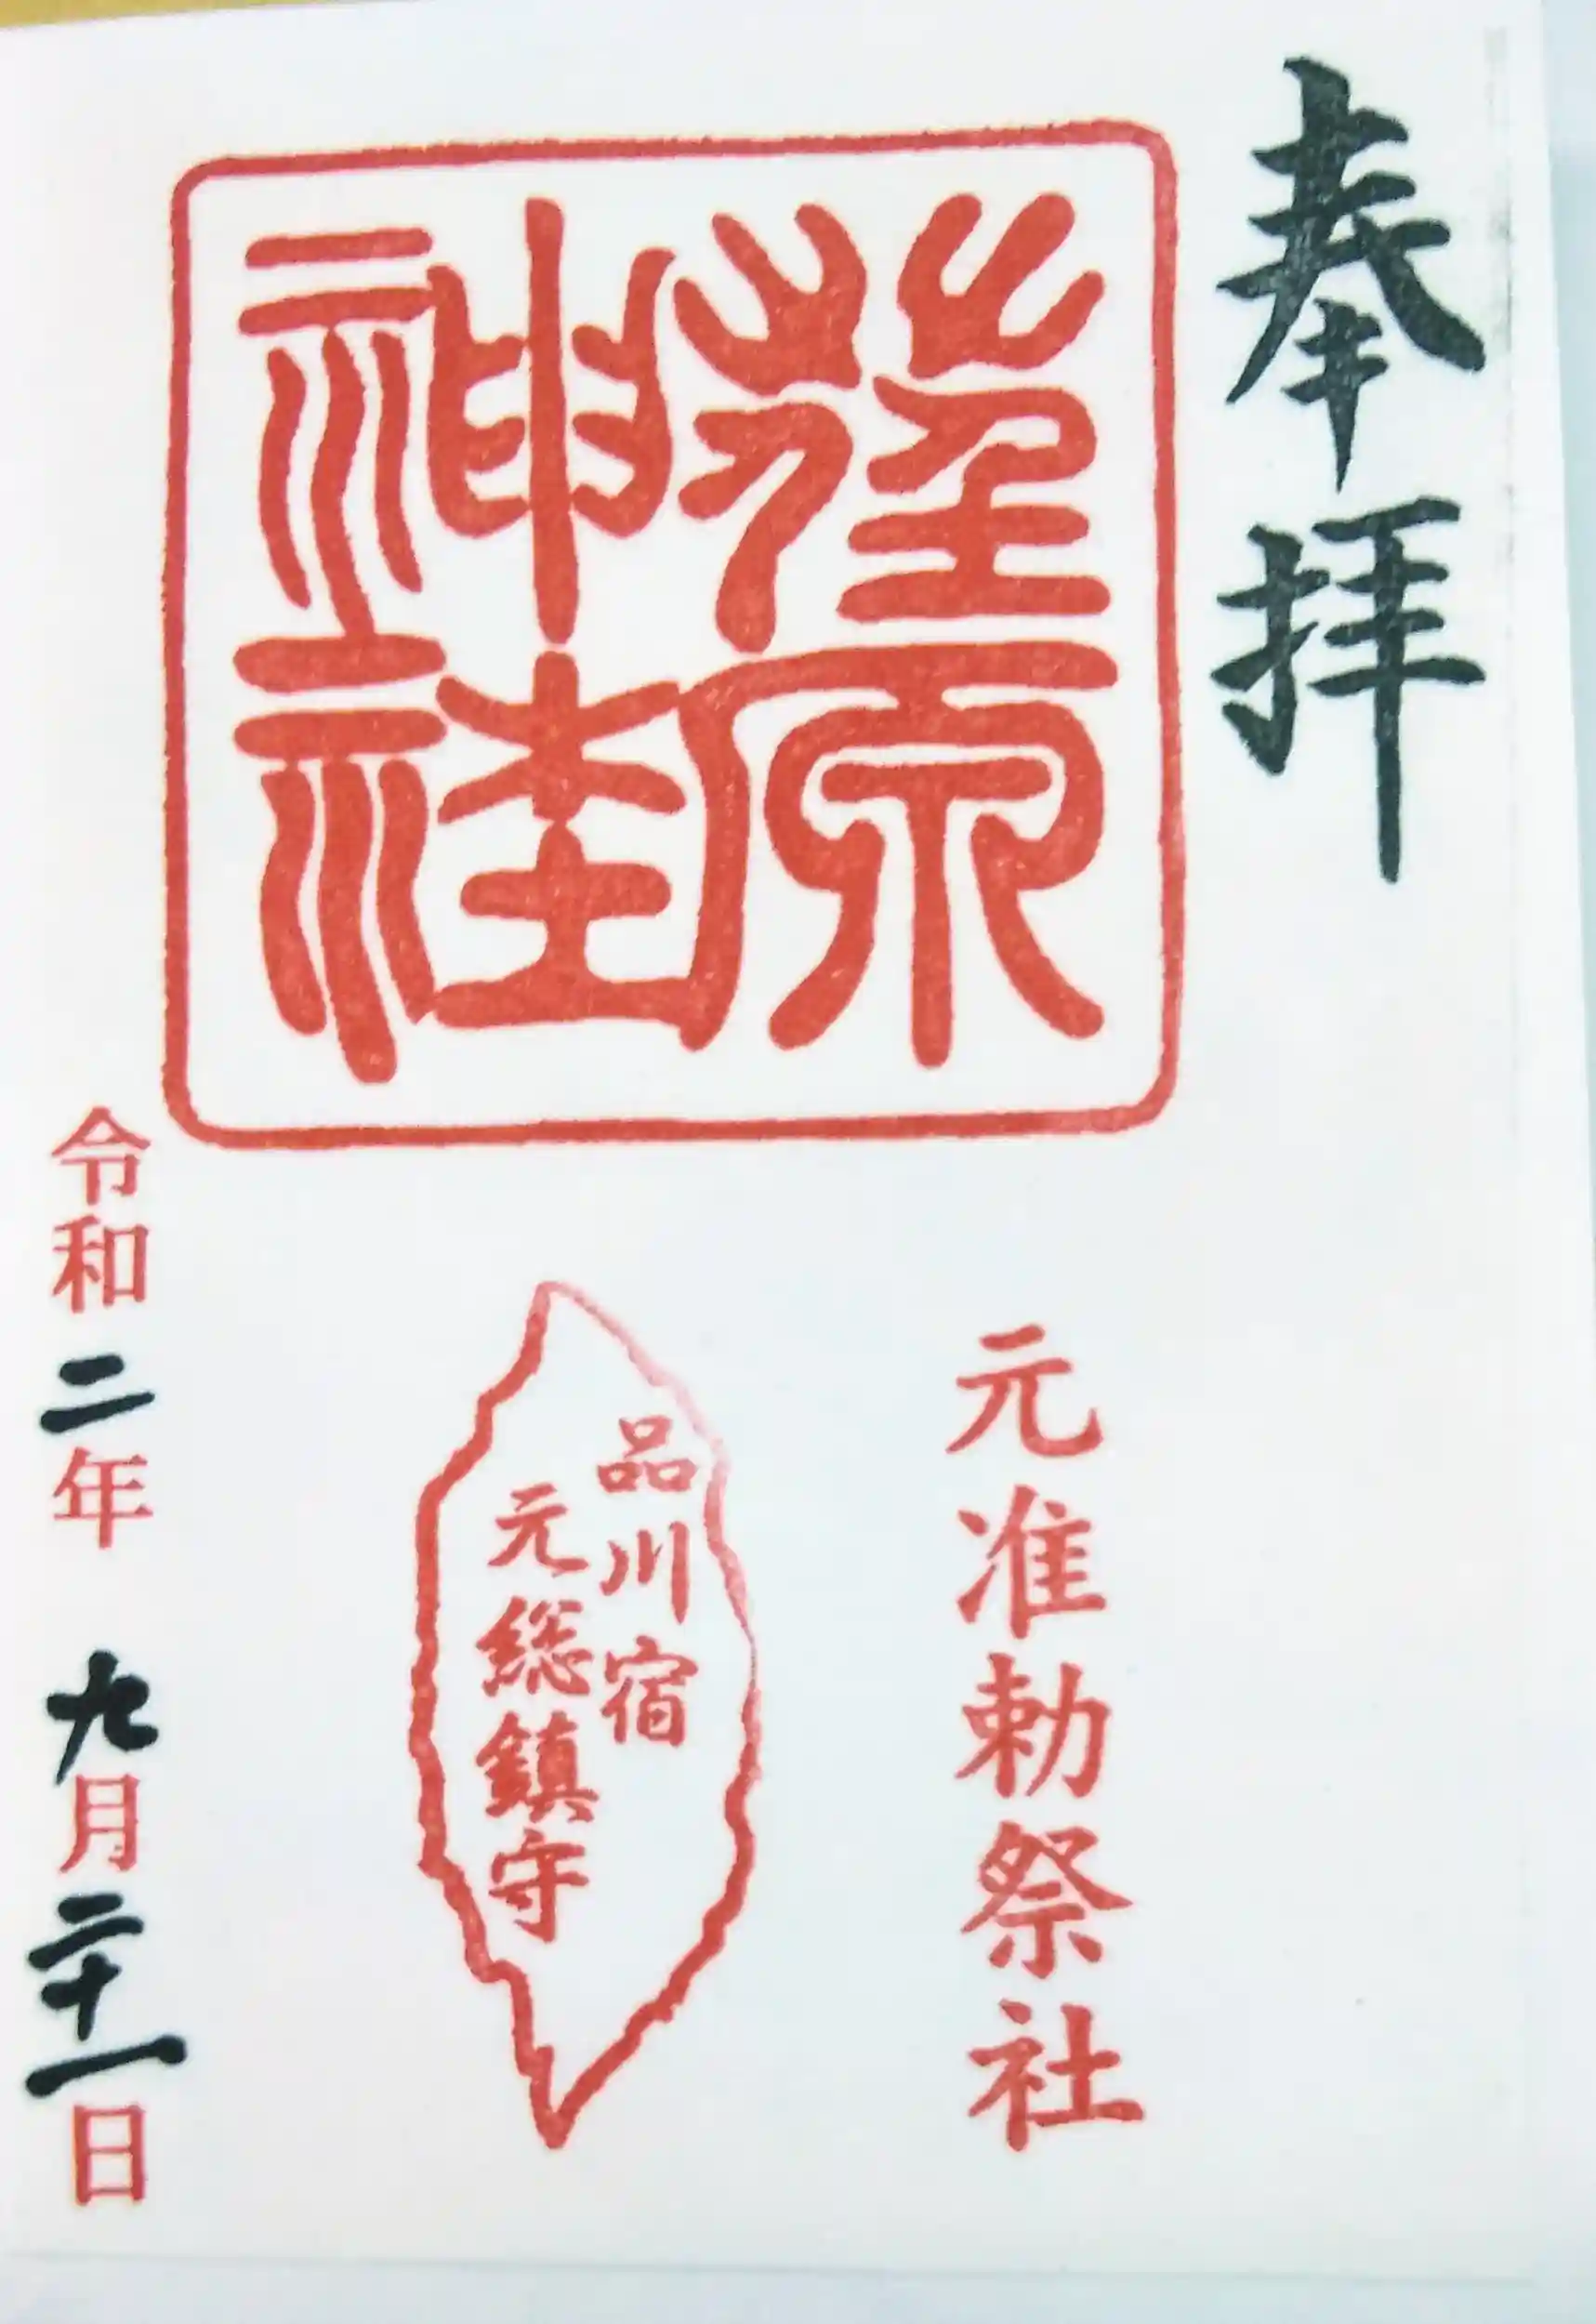 奉拝
荏原
神社
元准勅祭社
品川宿
元総鎮守
令和二年 九月二十一日